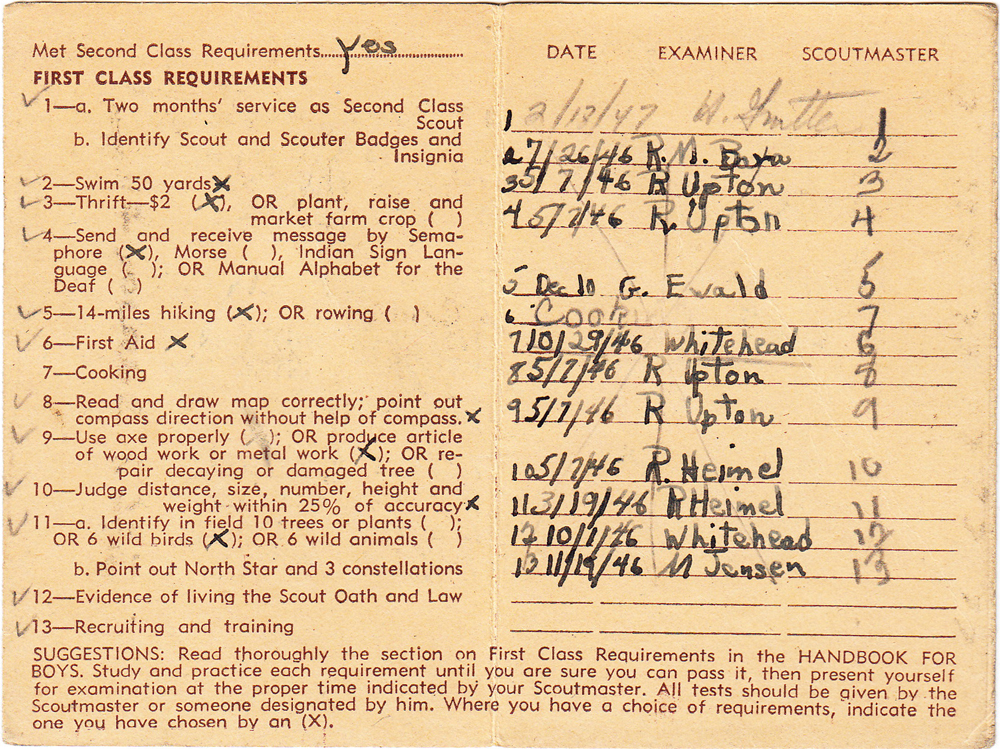 Met Second Class Requirements....Yes....
FIRST CLASS REQUIREMENTS
1—a. Two months' service as Second Class
Scout
b. Identify Scout and Scouter Badges and
Insignia
2—Swim 50 yards X
3—Thrift—$2 (X), OR plant, raise and
market farm crop ( )
4—Send and receive message by Sema-
phore (X), Morse ( ), Indian Sign Lan-
guage ( ); OR Manual Alphabet for the
Deaf ( )
5—14-miles hiking (X); OR rowing ( )
6—First Aid X
7—Cooking
8—Read and draw map correctly; point out
compass direction without help of compass. X
9—Use axe properly ( ); OR produce article
of wood work or metal work (X); OR re-
pair decaying or damaged tree ( )
10—Judge distance, size, number, height and
weight within 25% of accuracy X
11—a. Identify in field 10 trees or plants ( );
OR 6 wild birds (X); OR 6 wild animals ( )
b. Point out North Star and 3 constellations
12—Evidence of living the Scout Oath and Law
13—Recruiting and training
DATE EXAMINER SCOUTMASTER
1 2/12/47 H. 1
2 7/26/46 R.M. 2
3 5/7/46 R Upton 3
4 5/7/46 R Upton 4
5 Dec 10 G. Ewald 5
6 7
7 10/29/46 Whitehead 6
8 5/7/46 R Upton 8
9 5/7/46 R Upton 9
10 5/7/46 R. Heimel 10
11 3/19/46 R Heimel 11
12 10/1/46 Whitehead 12
13 11/19/46 M Jensen 13
SUGGESTIONS: Read thoroughly the section on First Class Requirements in the HANDBOOK FOR
BOYS. Study and practice each requirement until you are sure you can pass it, then present yourself
for examination at the proper time indicated by your Scoutmaster. All tests should be given by the
Scoutmaster or someone designated by him. Where you have a choice of requirements, indicate the
one you have chosen by an (X).